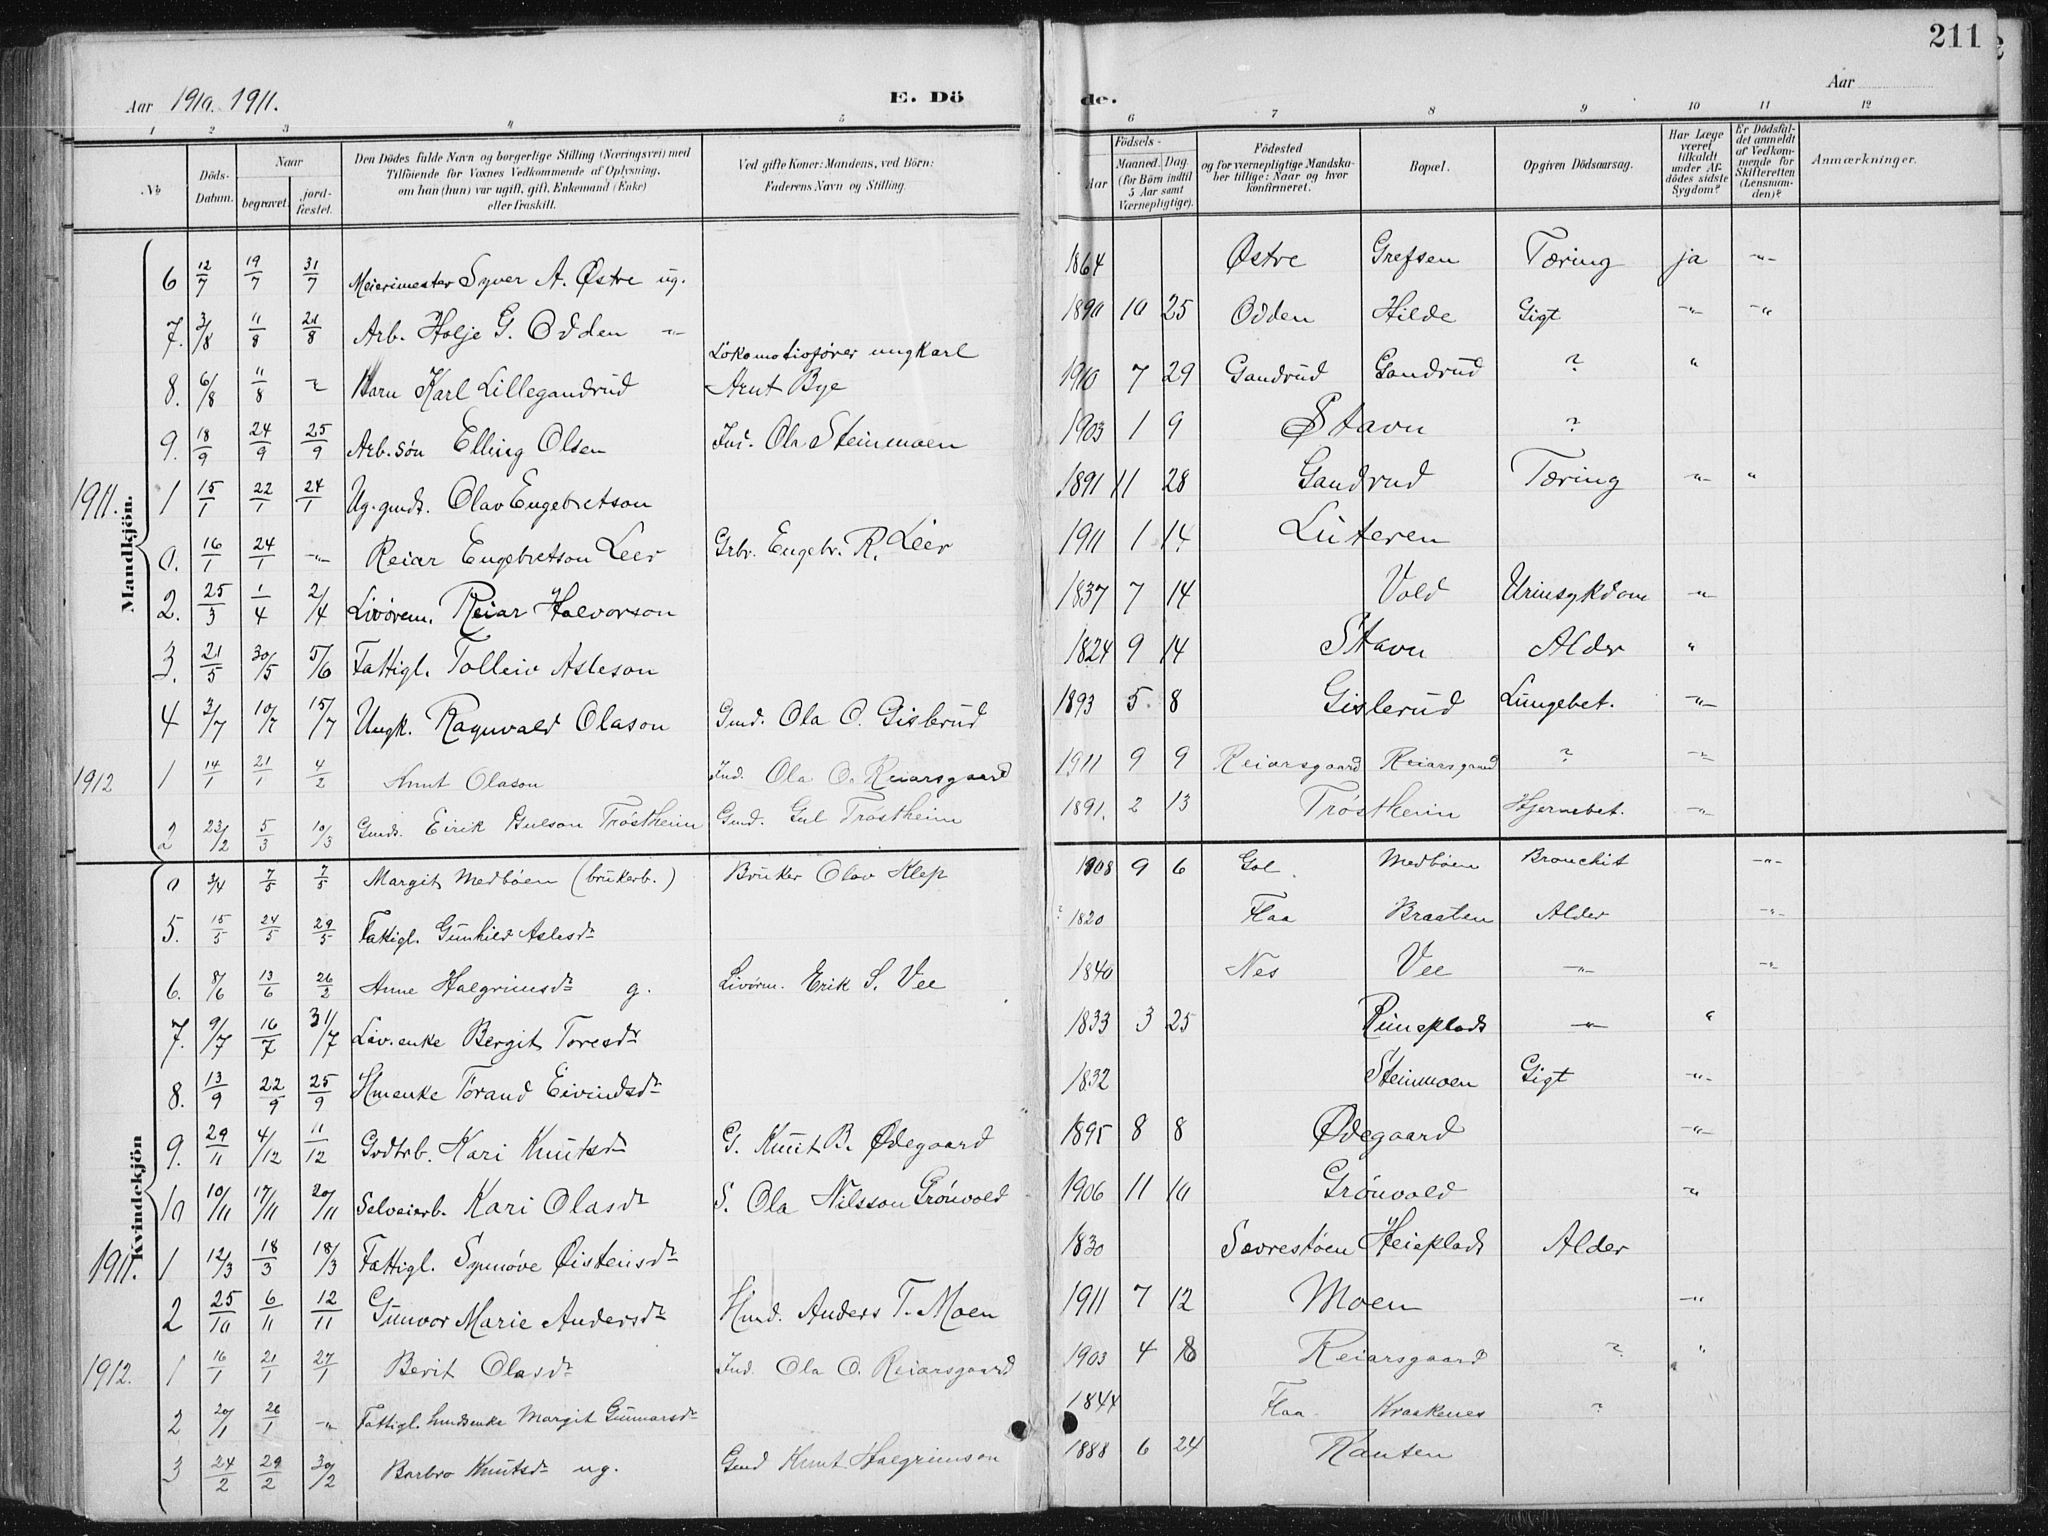 211
Aar 1910. 1911. E. Dö de. Aar
1 2 3 4 5 6 7 8 9 10 11 12
No
Döds-Datum.
Naar begravet. jord-fæstet.
Den Dödes fulde Navn og borgerlige Stilling (Næringsvei) med Tilföiende for Voxnes Vedkommende af Oplysning, om han (hun) var ugift, gift, Enkemand (Enke) eller fraskilt.
Ved gifte Koner: Mandens, ved Börn: Faderens Navn og Stilling.
Födsels-
Aar Maaned. Dag.
(for Börn indtil 5 Aar samt Værnepligtige).
Födested og for værnepligtige Mandska-ber tillige: Naar og hvor konfirmeret.
Bopæl.
Opgiven Dödsaarsag.
Har Læge været tilkaldt under Af-dödes sidste Sygdom?
Er Dödsfal-det anmeldt af Vedkom-mende for Skifteretten (Lensman-den)?
Anmærkninger.
Mandkjön.
6 12/7 19/7 31/7 Meierimester Syver A. Østre ug. 1864 Østre Grefsen Tæring ja -"-
7. 3/8 11/8 21/8 Arb. Holje G. Odden -"- 1890 10 25 Odden Hilde Gigt -"- -"-
8. 6/8 11/8 Barn Karl Lillegandrud Lokomotivfører ungkarl Arnt Bye 1910 7 29 Gandrud Gandrud ? "
9. 18/9 24/9 25/9 Arb. søn Elling Olsen Ind. Ola Steinmoen 1903 1 9 Stavn ?
1911. 1 15/1 22/1 24/1 Ug. gmds. Olav Engebretson 1891 11 28 Gandrud Tæring -"- "
0. 16/1 24/1 -"- Reiar Engebretson Leer Grbr. Engebr. R. Leer 1911 1 14 Luteren
2. 25/3 1/4 2/4 Livørem. Reiar Halvorson 1837 7 14 Vold Urinsykdom -"-
3. 21/5 30/5 5/6 Fattigl. Tolleiv Asleson 1824 9 14 Stavn Alder "
4 3/7 10/7 15/7 Ungk. Ragnvald Olason Gmd. Ola O. Gislerud 1893 5. 8 Gislerud Lungebet. -"-
1912 1 14/1 21/1 4/2 Knut Olason Ind. Ola O. Reiarsgaard 1911 9 9 Reiarsgaard Reiarsgaard ? -"-
2 23/2 5/3 10/3 Gmds. Eirik Gulson Trøstheim Gmd. Gul Trøstheim 1891. 2 13 Trøstheim Hjernebet. -"-
Kvindekjön
0 3/4 7/5 7/5 Margit Medbøen (brukerb.) Bruker Olav Klep 1908 9 6 Gol. Medbøen Bronchit -"-
5. 15/5 24/5 29/5 Fattigl. Gunhild Aslesdr ? 1820 Flaa Braaten Alder -"-
6. 8/6 13/6 26/2 Anne Halgrimsdr g. Livørm. Erik S. Vee 1840 Nes Vee -"- -"-
7. 9/7 16/7 31/7 Liv. enke Bergit Toresdr 1833 3 25 Runeplads -"- "
8. 13/9 22/9 25/9 Hmenke Torand Eivindsdr 1832 Steinmoen Gigt -"-
9. 29/11 4/12 11/12 Grdbrb. Kari Knutsdr G. Knut B. Ødegaard 1895 8 8 Ødegaard -"-
10 10/11 17/11 20/11 Selveierb. Kari Olasdr S. Ola Nilsson Grønvold 1906 11 10 Grønvold -"-
1911. 1 12/3 18/3 18/3 Fattigl. Synnøve Øisteinsdr 1830 Sevrestøen Heieplads Alder
2 25/10 6/11 12/11 Gunvor Marie Andersdr Hmd. Anders T. Moen 1911 7 12 Moen -"-
1912. 1 16/1 21/1 27/1 Berit Olasdr Ind. Ola O. Reiarsgaard 1903 4 8 Reiarsgaard ? "
2 20/1 26/1 -"- Fattigl. Margit Gunnarsdr 1844 Flaa. Kraakenes ?
3 24/2 29/2 30/2 Barbro Knutsdr ug. Gmd Knut Halgrimson 1888 6 24 Rauten